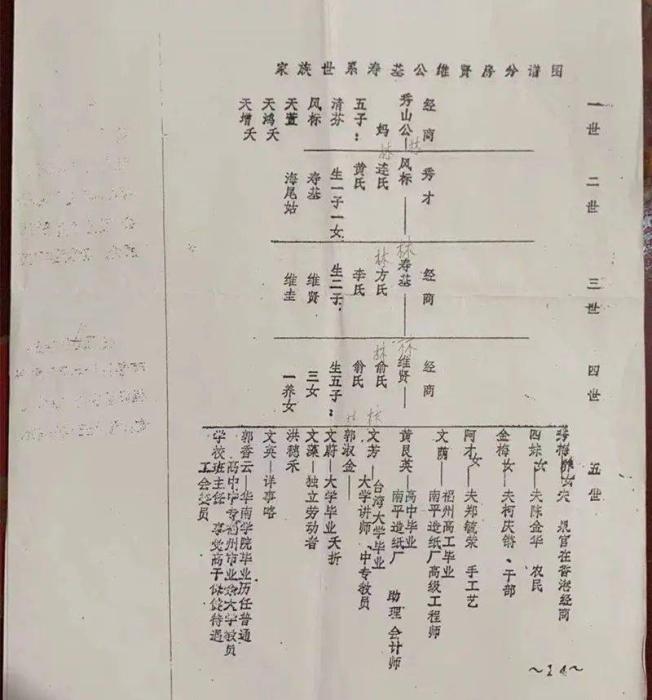 家族世系寿基公维贤房分谱图
一世
经商
秀山公——风标
妈
五子：
清芬
风标
天萱
天鸿夭
天增夭
二世
秀才
林
林连氏
黄氏
生一子一女
寿基
海尾姑
三世
经商
林寿基
林方氏
李氏
生二子
维贤
维圭
四世
经商
林维贤
林俞氏
俞氏
生五子：
三女
一养女
五世
现官在香港经商
四妹女——夫陈金华 农民
金梅女——夫柯庆锵、干部
阿才女——夫郑毓荣 手工艺
文荫——福州高工毕业
南平造纸厂高级工程师
黄艮英——高中毕业
南平造纸厂 助理会计师
林
文芳——台湾大学毕业
大学讲师、中专教员
郭淑金——
文蔚——大学毕业夭折
文藻——独立劳动者
洪穗禾
文英——详事略
郭香云——华南学院毕业历任普通
高中中专福州市业余大学教员
学校班主任 享受高干保健待遇
工会委员